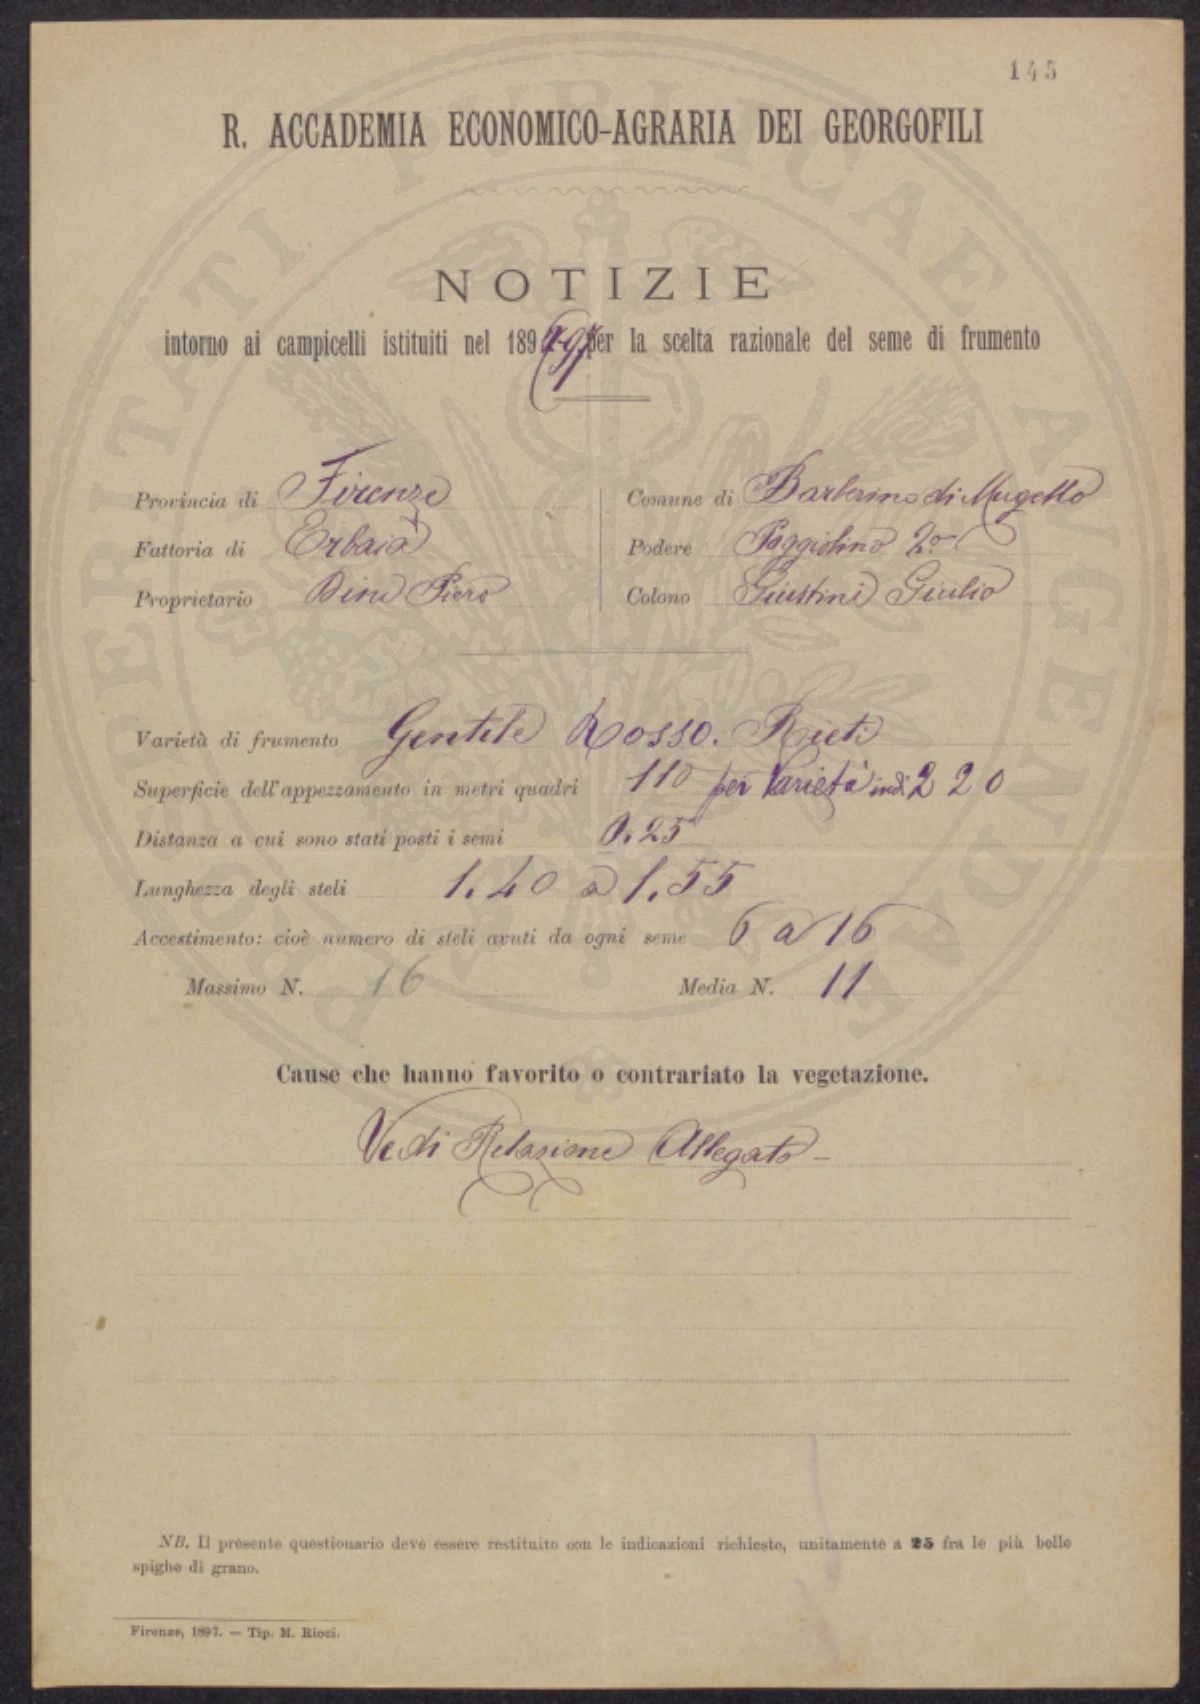 145
R. ACCADEMIA ECONOMICO-AGRARIA DEI GEORGOFILI
PROSPERITATI PUBLICAE AUGENDAE
NOTIZIE
intorno ai campicelli istituiti nel 189 97 per la scelta razionale del seme di frumento
Provincia di Firenze
Comune di Barberino di Mugello
Fattoria di Erbaia
Podere Poggiolino 2o
Proprietario Dini Piero
Colono Giustini Giulio
Varietà di frumento Gentile Rosso. Rieti
Superficie dell'appezzamento in metri quadri 110 per Varietà indi 220
Distanza a cui sono stati posti i semi 0.25
Lunghezza degli steli 1.40 a 1.55
Accestimento: cioè numero di steli avuti da ogni seme 6 a 16
Massimo N. 16 Media N. 11
Cause che hanno favorito o contrariato la vegetazione.
Vedi Relazione Allegato -
NB. Il presente questionario deve essere restituito con le indicazioni richieste, unitamente a 25 fra le più belle
spighe di grano.
Firenze, 1897. — Tip. M. Ricci.